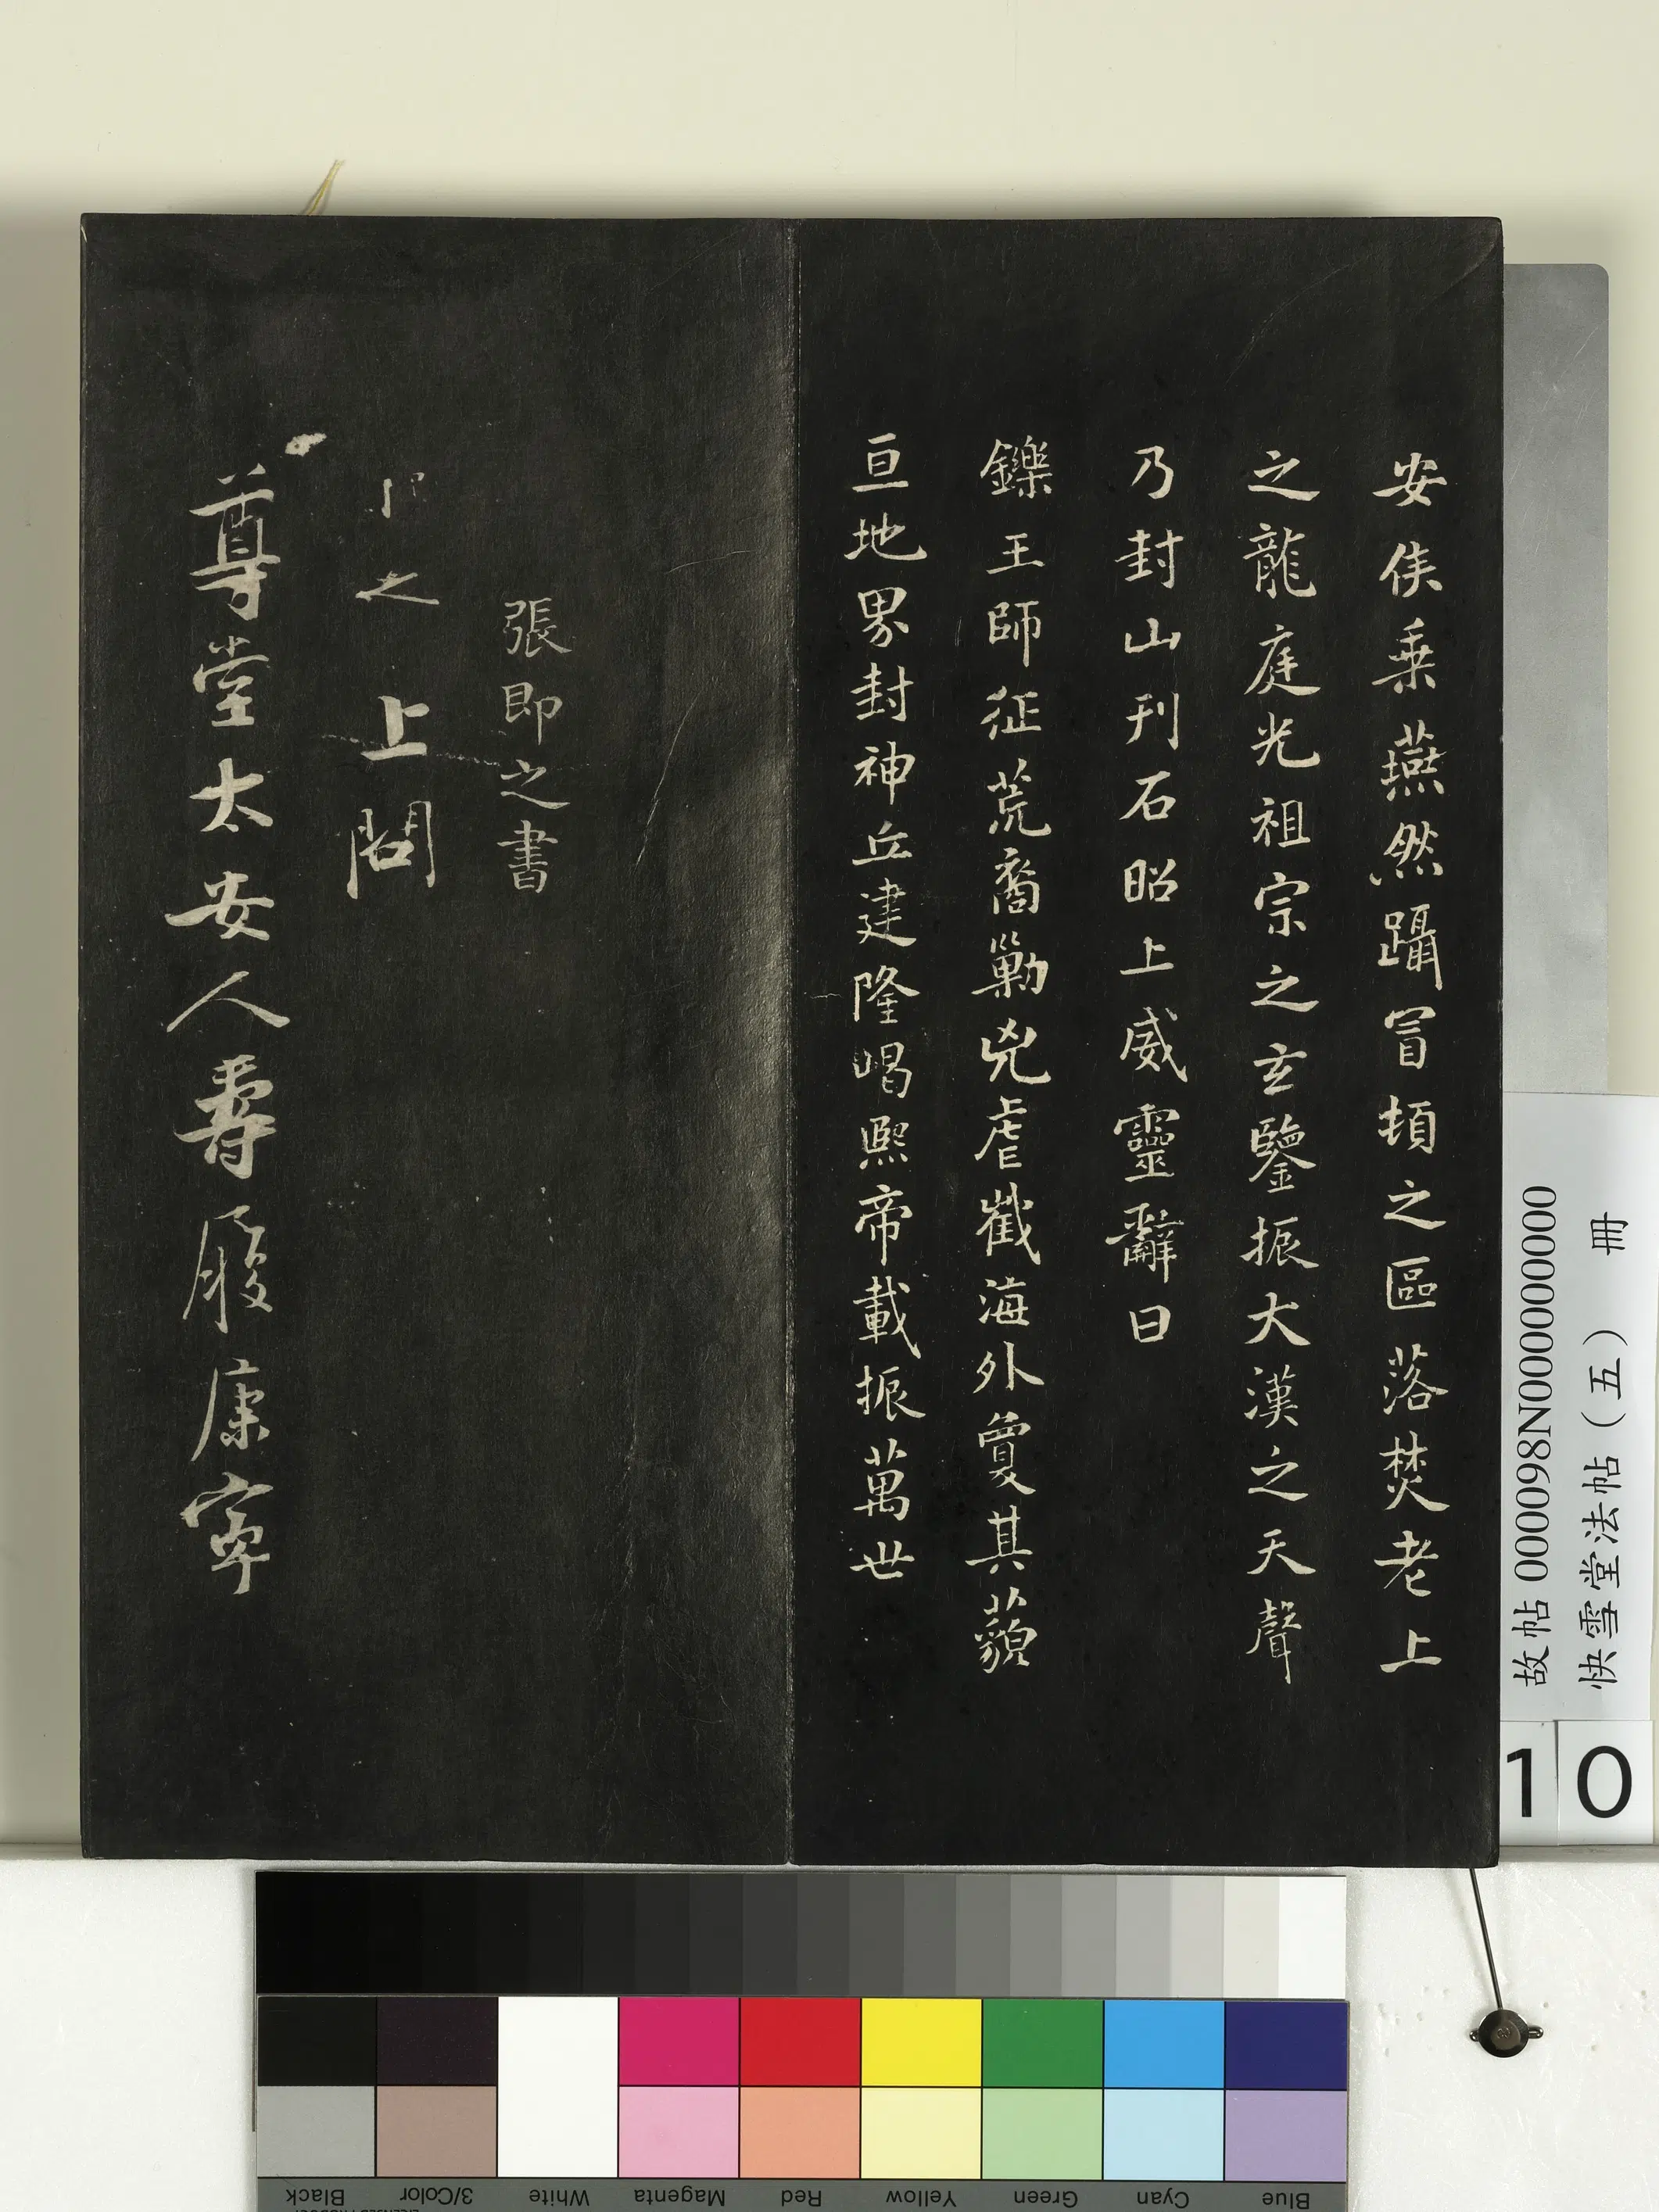 安侯乘燕然躡冒頓之區落焚老上
之龍庭光祖宗之玄鑒振大漢之天聲
乃封山刊石昭上威靈辭曰
鑠王師征荒裔勦兇虐截海外敻其藐
亘地界封神丘建隆嵑熙帝載振萬世
張即之書
即之上問
尊堂太安人壽履康寧
故帖 000098N000000000
快雪堂法帖（五） 冊
10
Black
3/Color
White
Magenta
Red
Yellow
Green
Cyan
Blue